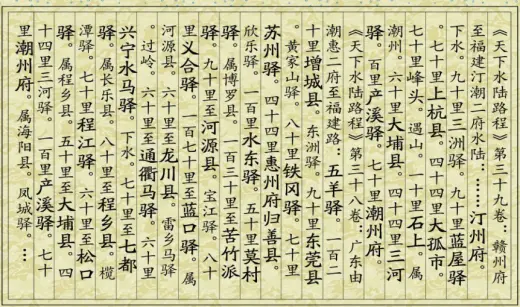 《天下水陆路程》第三十九卷：赣州府
至福建汀潮二府水陆：……汀州府。
下水。九十里三洲驿。九十里蓝屋驿
。七十里上杭县。四十四里大孤市。
七十里峰头。遇山。一十里石上。属
潮州。六十里大埔县。四十四里三河
驿。百里产溪驿。七十里潮州府。
《天下水陆路程》第三十八卷：广东由
潮惠二府至福建路：五羊驿。一百二
十里增城县。东洲驿。九十里东莞县
。黄家山驿。八十里铁冈驿。七十里
苏州驿。四十四里惠州府归善县。
欣乐驿。一百里水东驿。五十里莫村
驿。属博罗县。一百三十里至苦竹派
驿。九十里至河源县。宝江驿。八十
里义合驿。一百七十里至蓝口驿。属
河源县。六十里至龙川县。雷乡马驿
。过岭。六十里至通衢马驿。六十里
兴宁水马驿。下水。七十里至七都
驿。属长乐县。八十里至程乡县。榄
潭驿。七十里程江驿。六十里至松口
驿。属程乡县。五十里至大埔县。四
十四里三河驿。一百里产溪驿。七十
里潮州府。属海阳县。凤城驿。…